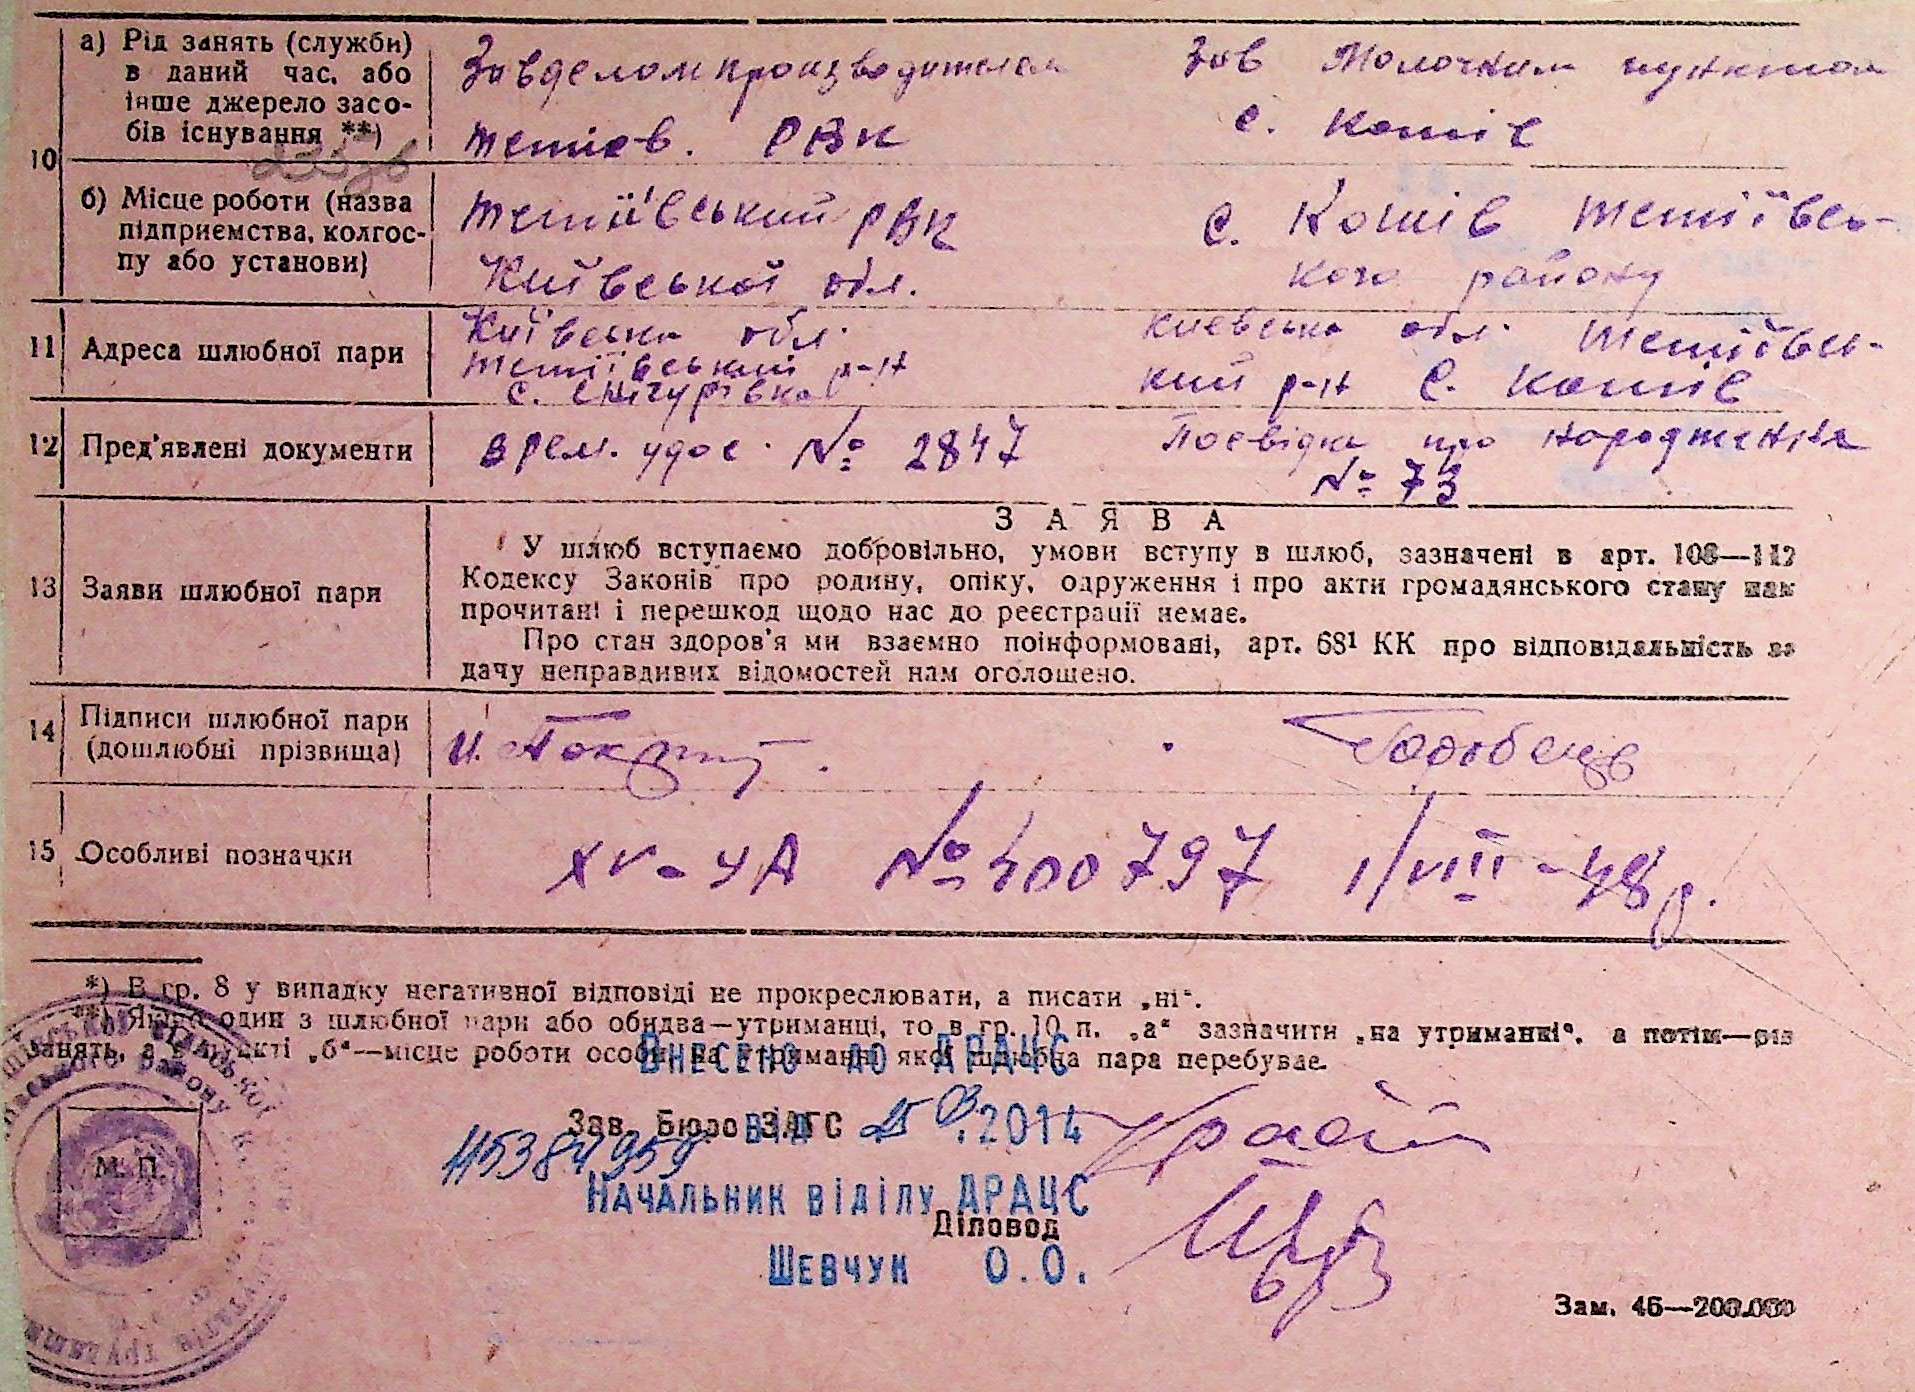 10
а) Рід занять (служби)
в даний час, або
інше джерело засо-
бів існування **)
Завделомпроизводителем
Тетіев. РВК
Зав молочним пунктом
с. Кошів
б) Місце роботи (назва
підприємства, колгос-
пу або установи)
Тетіївський РВК
Київської обл.
с. Кошів Тетіївсь-
кого району
11 Адреса шлюбної пари
Київська обл.
Тетіївський р-н
с. Снігурівка
Киевська обл. Тетіївсь-
кий р-н с. Кошів
12 Пред'явлені документи
Врем. удос. № 2847
Посвідка про народження
№ 73
13 Заяви шлюбної пари
ЗАЯВА
У шлюб вступаємо добровільно, умови вступу в шлюб, зазначені в арт. 108—112
Кодексу Законів про родину, опіку, одруження і про акти громадянського стану нам
прочитані і перешкод щодо нас до реєстрації немає.
Про стан здоров'я ми взаємно поінформовані, арт. 68¹ КК про відповідальність за
дачу неправдивих відомостей нам оголошено.
14 Підписи шлюбної пари
(дошлюбні прізвища)
И.
15 Особливі позначки
XV-УА № 400797 1/VIII-48р.
*) В гр. 8 у випадку негативної відповіді не прокреслювати, а писати „ні“.
**) Якщо один з шлюбної пари або обидва—утриманці, то в гр. 10 п. „а“ зазначити „на утриманні“, а потім—рід
занять, а в пункті „б“—місце роботи особи, на утриманні якої шлюбна пара перебуває.
Внесено до ДРАЦС
Зав. Бюро ЗАГС
від 25 03.2014
М. П.
Начальник віділу ДРАЦС
Діловод
Шевчук О.О.
Зам. 45—200.000